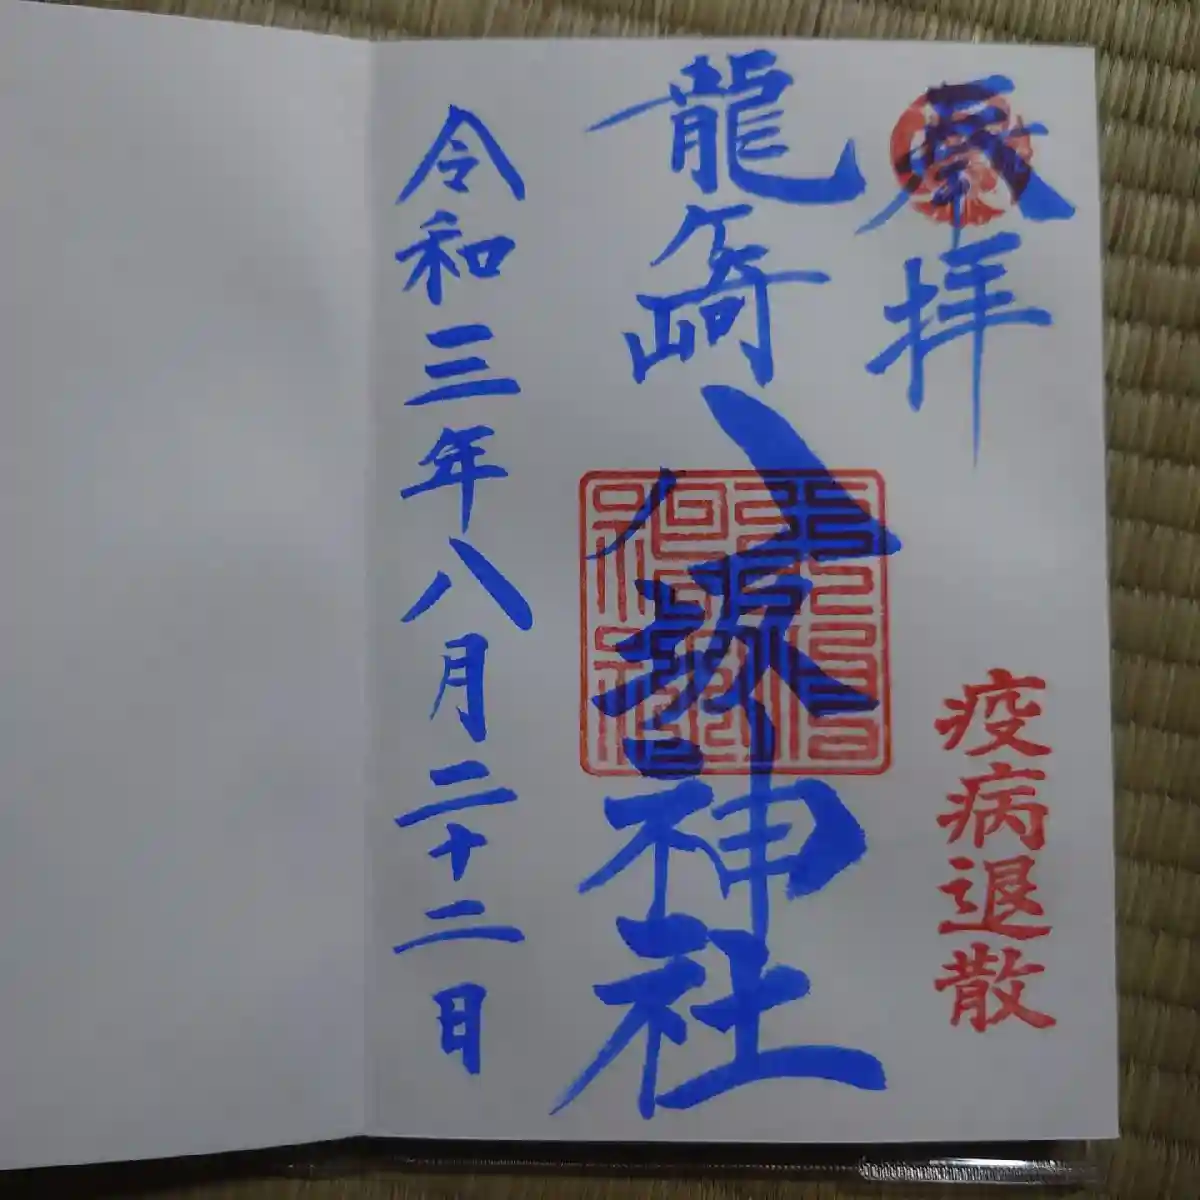 厳拝
疫病退散
龍ケ崎八坂神社
令和三年八月二十二日